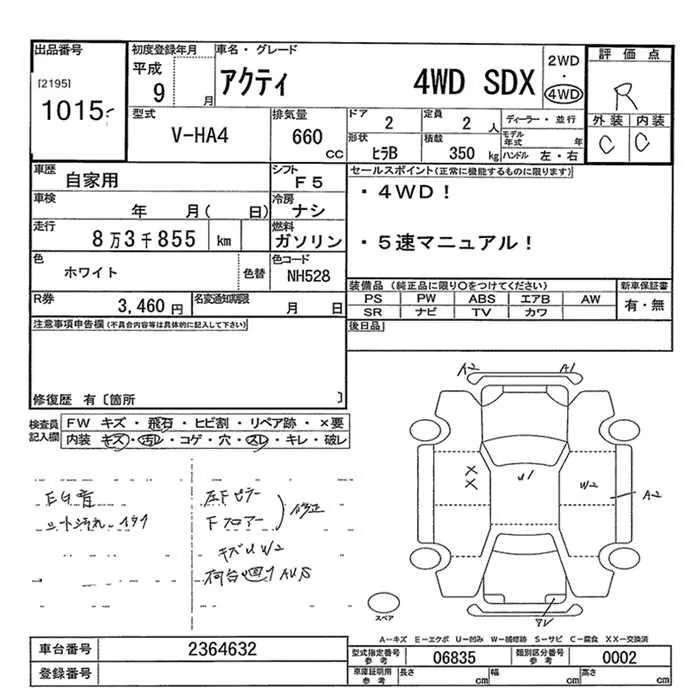 出品番号 初度登録年月 車名・グレード 評価点
[2195] 平成 アクティ 4WD SDX 2WD
1015 9 月 ・ R
4WD
型式 排気量 ドア 定員 ディーラー・並行 外装 内装
V-HA4 660 cc 2 2 人 モデル年式 年 C C
形状 積載 ハンドル 左・右
ヒラB 350 kg
車歴 自家用 シフト F5 セールスポイント(正常に機能するものに限ります)
車検 年 月( 日) 冷房 ナシ ・4WD!
走行 8万3千855 km 燃料 ガソリン ・5速マニュアル!
色 ホワイト 色替 色コード NH528
装備品(純正品に限り○をつけてください) 新車保証書
R券 3,460円 名変通知期限 月 日 PS PW ABS エアB AW 有・無
SR ナビ TV カワ
注意事項申告欄(不具合内容等は具体的に記入して下さい) 後日品
修復歴 有〔箇所 〕
検査員記入欄 FW キズ・飛石・ヒビ割・リペア跡・×要
内装 キズ・汚レ・コゲ・穴・スレ・キレ・破レ
A2 A1
EG音 左Fピラー
シート汚れ Fフロアー 修正
キズU W2
荷台
XX
U1
W2
A2
スペア
A—キズ E—エクボ U—凹み W—補修跡 S—サビ C—腐食 XX—交換済
車台番号 2364632 型式指定番号 参考 06835 類別区分番号 参考 0002
登録番号 車庫証明用 参考 長さ cm 幅 cm 高さ cm